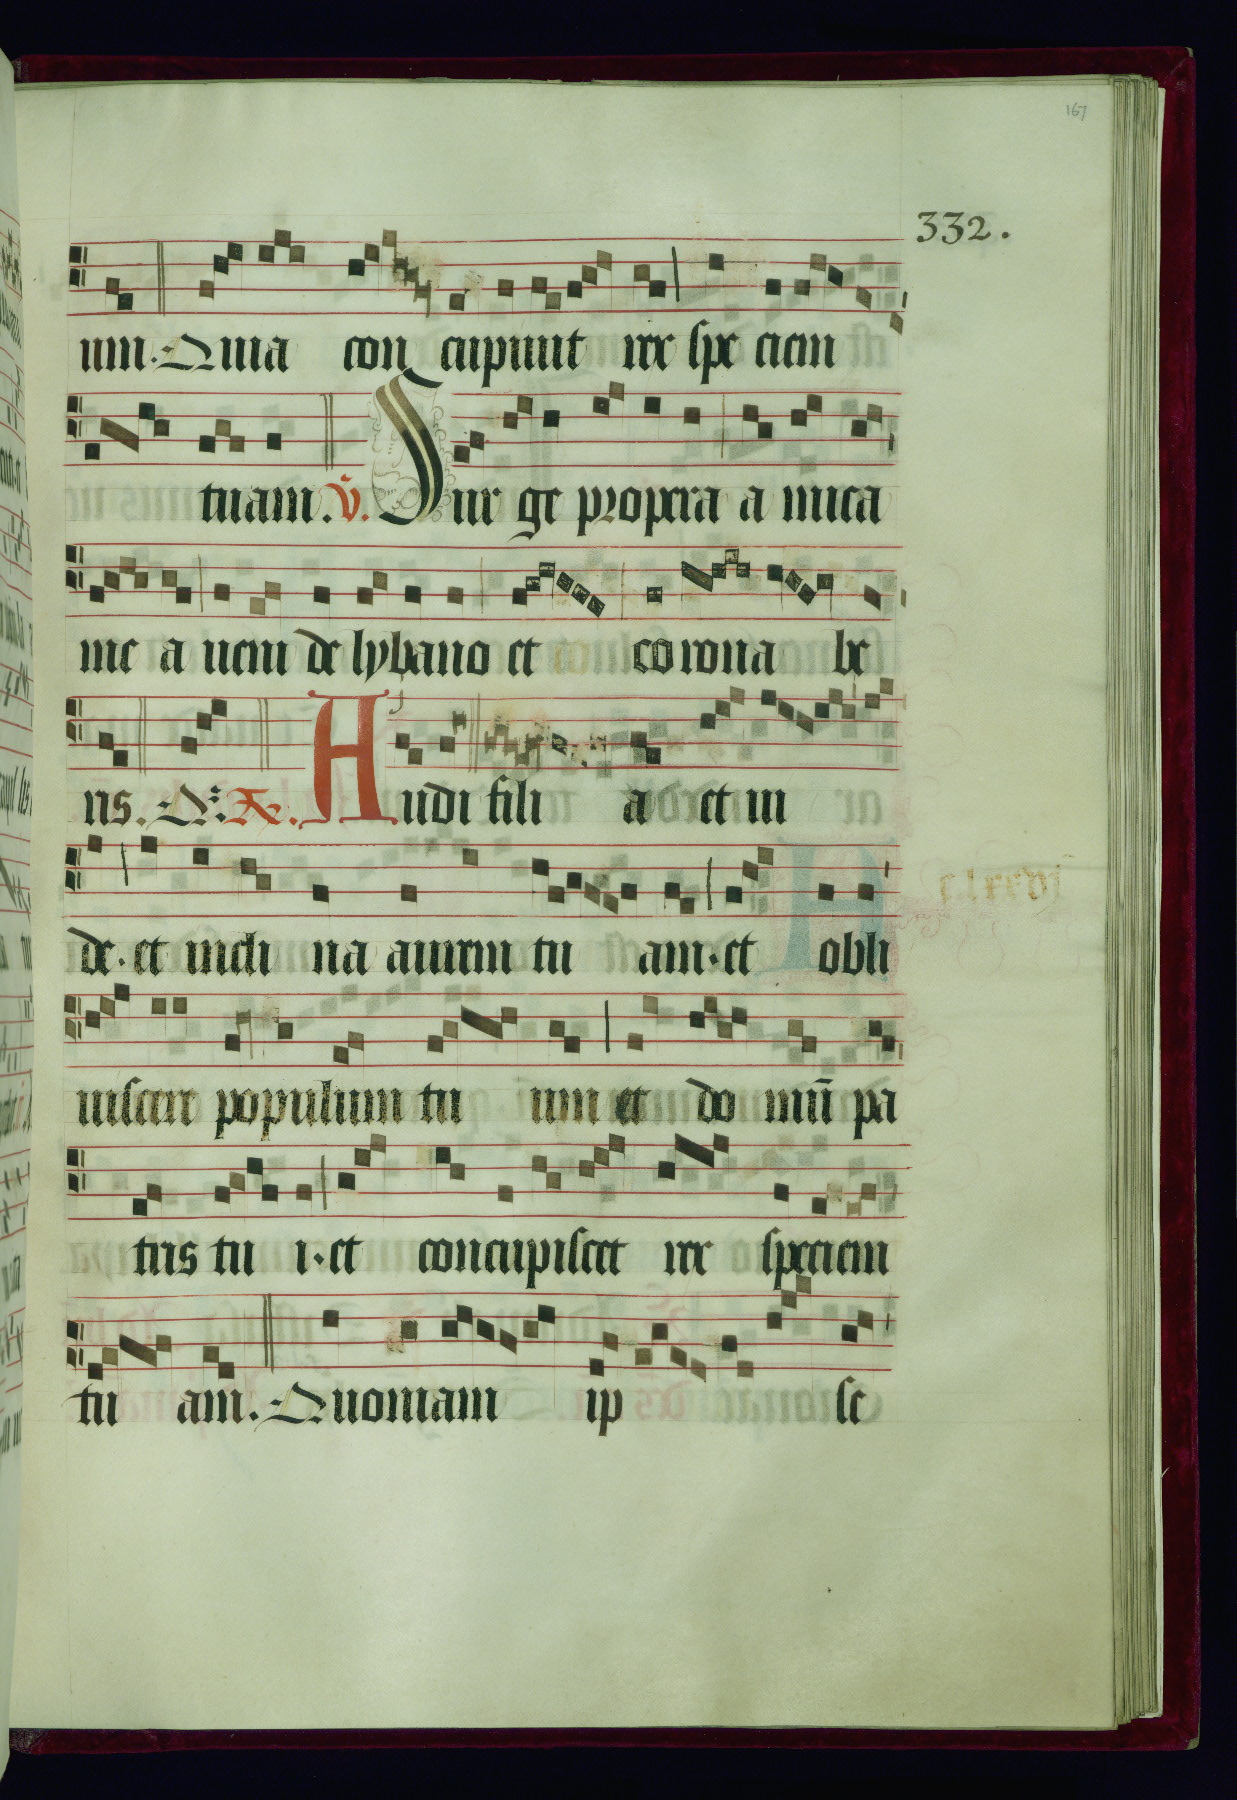 167
332.
um. Quia con cupiuit rex spe ciem
tuam. V̄. Sur ge propera a mica
me a ueni de lybano et co rona be
ris. Q̄. R. Audi fili a et ui
de. et incli na aurem tu am. et obli
uiscere populum tu um et do mū pa
tris tu i. et concupiscet rex speciem
tu am. Quoniam ip se